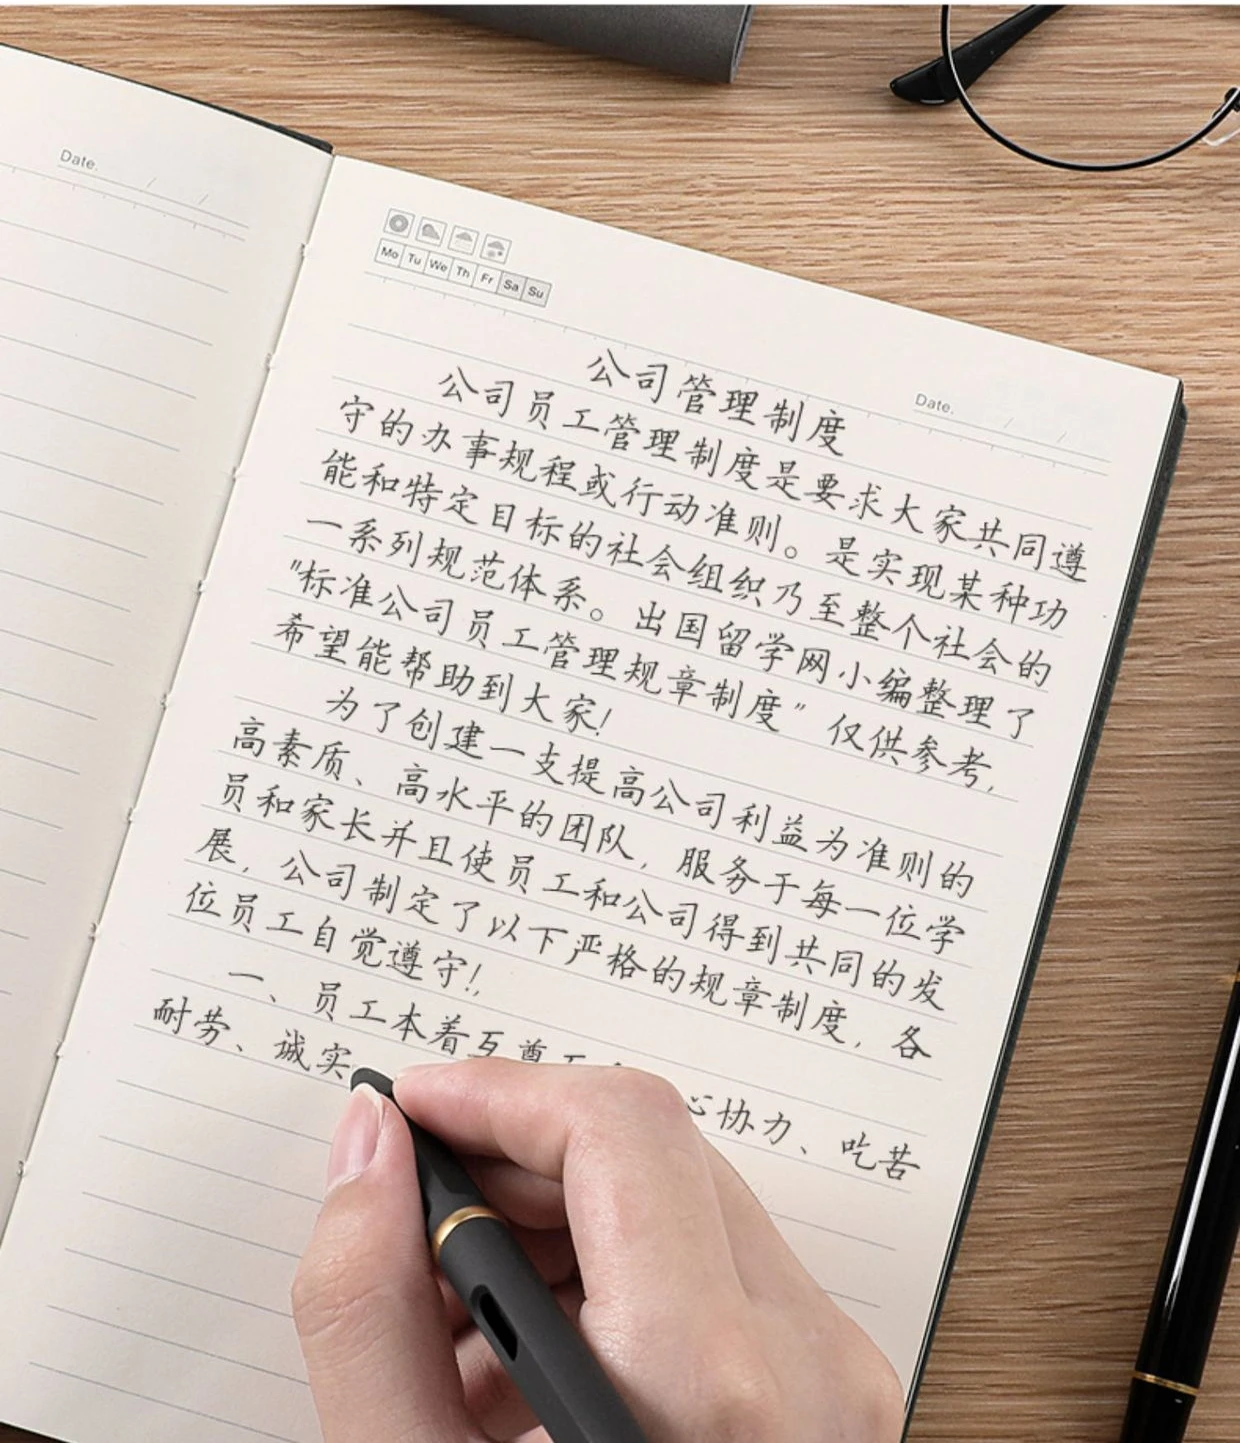 Date.
Mo Tu We Th Fr Sa Su
Date.
公司管理制度
公司员工管理制度是要求大家共同遵
守的办事规程或行动准则。是实现某种功
能和特定目标的社会组织乃至整个社会的
一系列规范体系。出国留学网小编整理了
"标准公司员工管理规章制度"仅供参考,
希望能帮助到大家!
为了创建一支提高公司利益为准则的
高素质、高水平的团队,服务于每一位学
员和家长并且使员工和公司得到共同的发
展,公司制定了以下严格的规章制度,各
位员工自觉遵守!,
一、员工本着互尊 心协力、吃苦
耐劳、诚实